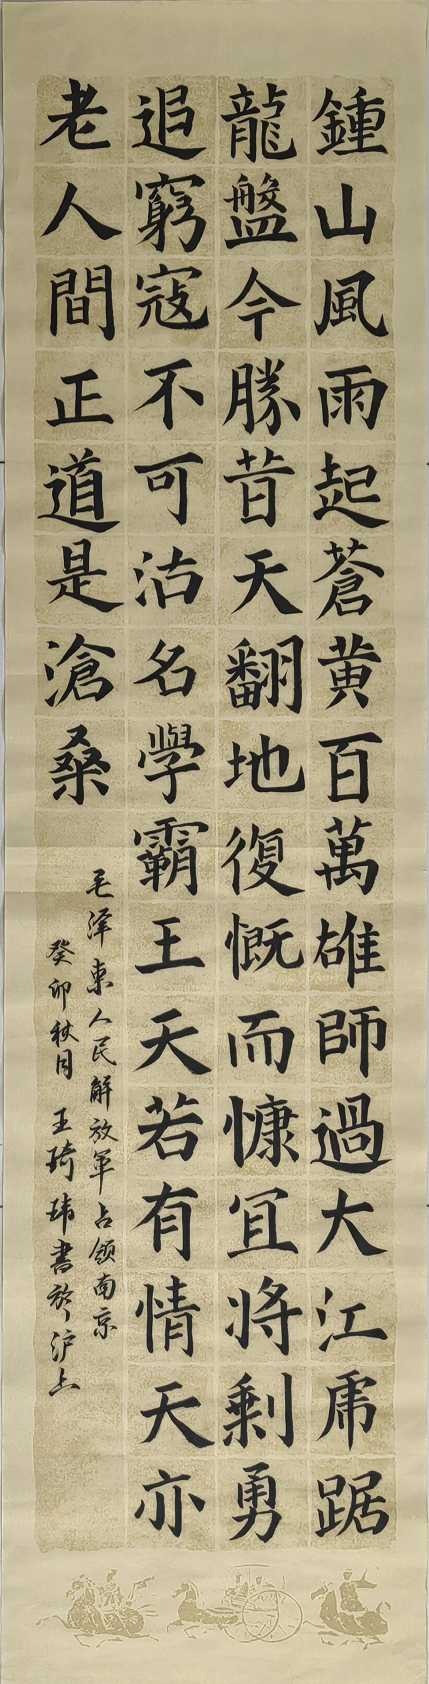 鍾山風雨起蒼黄百萬雄師過大江虎踞
龍盤今勝昔天翻地復慨而慷宜將剩勇
追窮寇不可沽名學霸王天若有情天亦
老人間正道是滄桑
毛泽東人民解放军占领南京
癸卯秋月王琦玮書於沪上